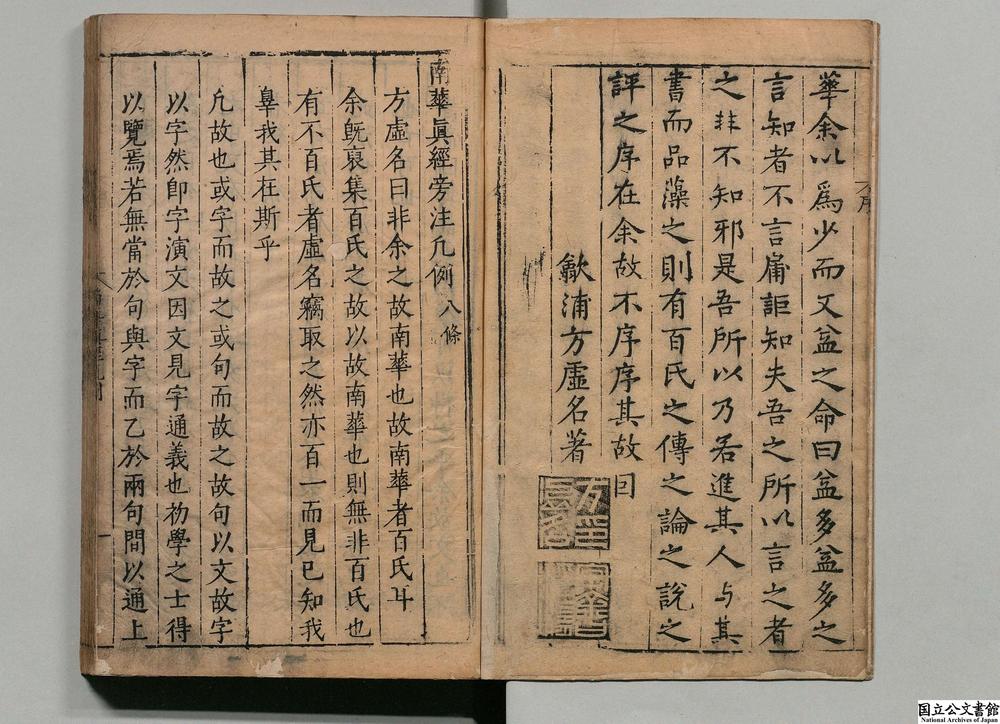 華余以爲少而又益之命曰益多益多之
言知者不言庸詎知夫吾之所以言之者
之非不知邪是吾所以乃若進其人与其
書而品藻之則有百氏之傳之論之說之
評之序在余故不序序其故曰
歙浦方虛名著
南華眞經旁注凡例 八條
方虛名曰非余之故南華也故南華者百氏耳
余旣裒集百氏之故以故南華也則無非百氏也
有不百氏者虛名竊取之然亦百一而見已知我
辠我其在斯乎
凡故也或字而故之或句而故之故句以文故字
以字然卽字演文因文見字通義也初學之士得
以覽焉若無當於句與字而乙於兩句間以通上
一
国立公文書館
National Archives of Japan